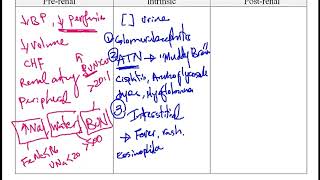 Pre-renal
Intrinsic
Post-renal
↓BP, ↓ Perfusion
↓ Volume
CHF
Renal artery
Peripheral
↑ BUN/Cr
>20:1
↑Na, Water, BUN
FeNa<1%
UNa<20
[ ] Urine
① Glomerulonephritis
② ATN → "Muddy Brown
Cisplatin, Aminoglycoside
dyes, Myoglobinuria
③ Interstitial
→ Fever, rash,
Eosinophilia